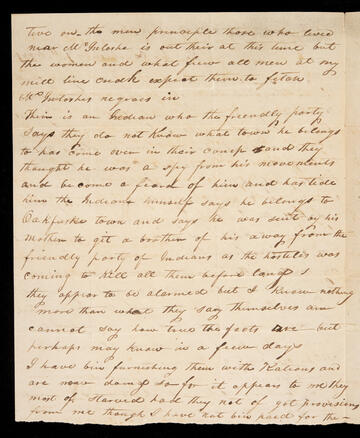 tive on the men principle those who lived
near McIntoshs is out theirs at this time but
the women and what few all men at my
mill line Creek expect them to
McIntoshes negroes in
Their is an Indian who the friendly party
says they do not know what town he belongs
to has come over in their camp and they
thought he was a spy from his movements
and become a feard of him and has tide
him the Indian himself says he belongs to
Oakfuske town and says he was sent by his
mother to git a brother of his away from the
friendly party of Indians as the hostiles was
coming to kill all them before long
they appear to be alarmed but I know nothing
more than what they say themselves am
cannot say how true the facts are but
perhaps may know in a few days
I have bin furnishing them with Rations and
are now doing so for it appears to me they
most of starved had they not of got provisions
from me though I have not bin paid for the